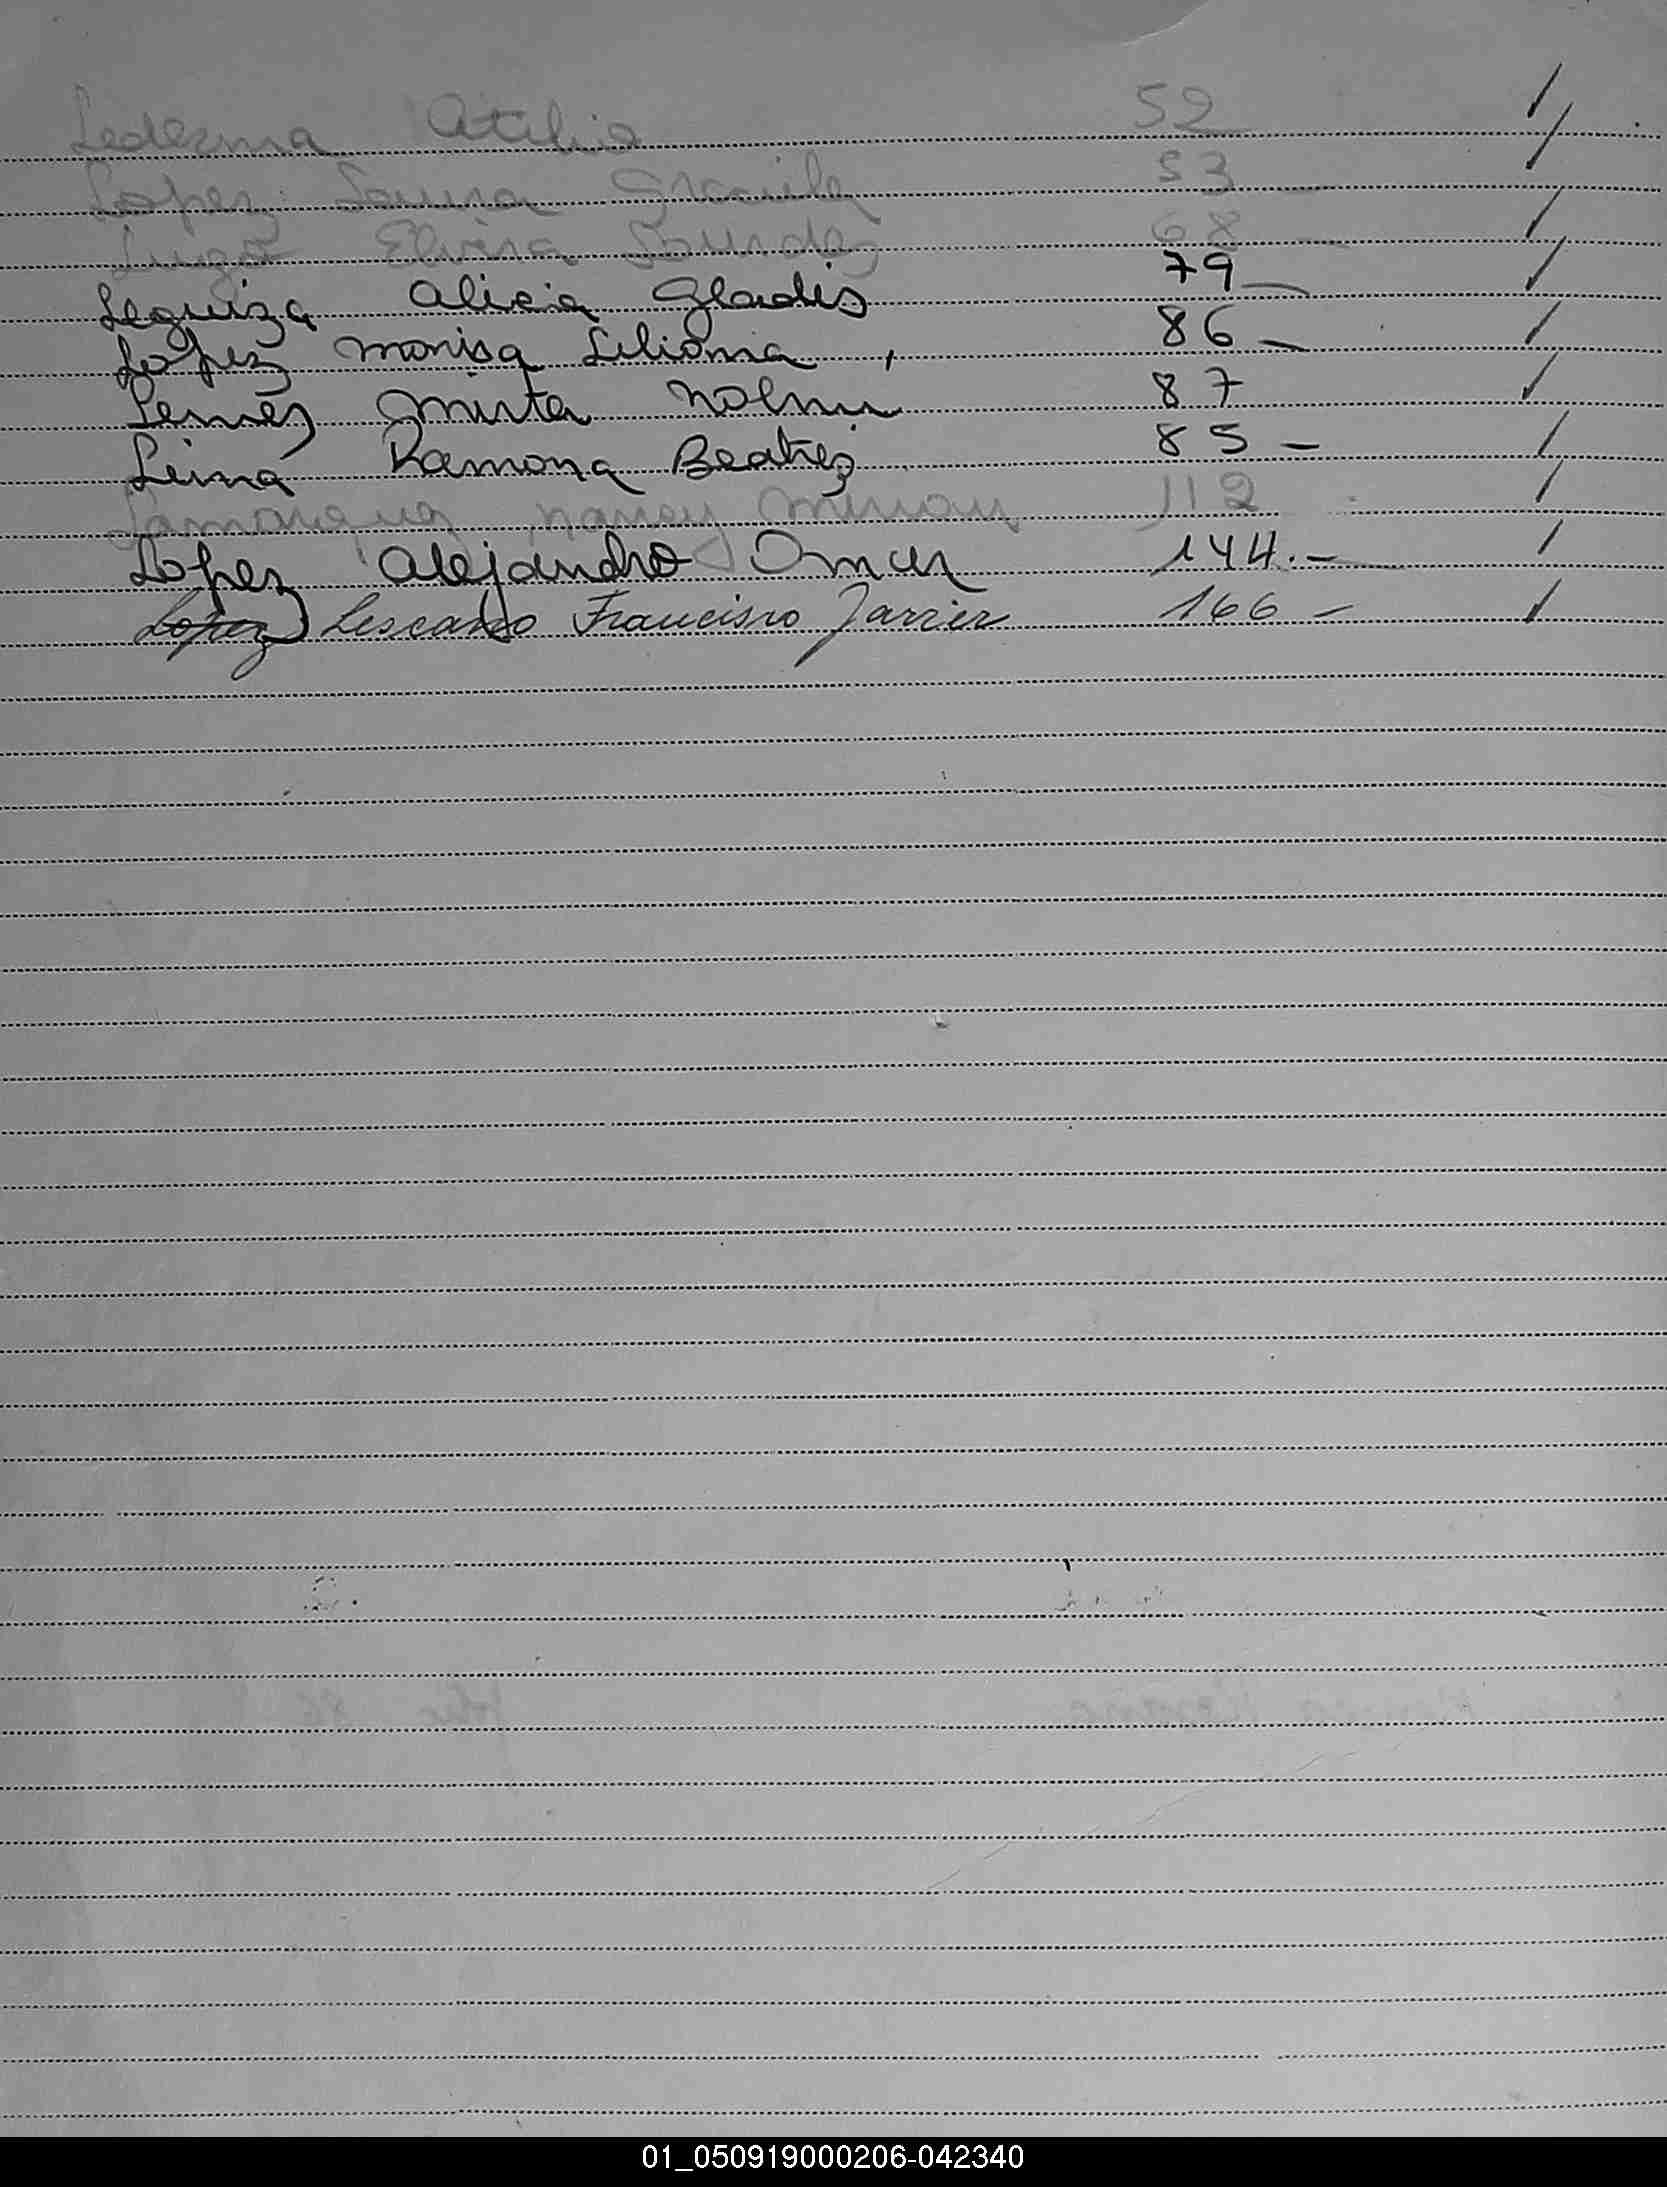 Ledesma Atilio 52
Lopez Laura Graciela 53 -
Lugo Elvira Lourdez 68 -
Leguiza Alicia Gladis 79 -
Lopez Monica Liliana 86 -
Lemez Mirta 87
Leina Ramona Beatriz 85 -
Lamarque Nancy Miriam 112
Lopez Alejandro Omar 144.-
Lopez Lescano Francisco Javier 166 -
01_050919000206-042340